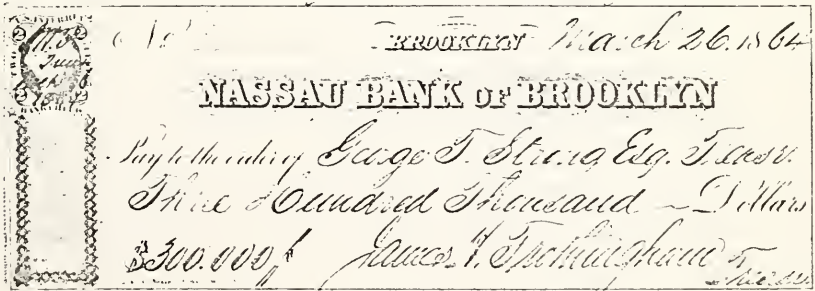 No
BROOKLYN March 26. 1864
NASSAU BANK OF BROOKLYN
Pay to the order of George T. Strong Esq. Treasr.
Three Hundred Thousand ~ Dollars
$300.000
James H. Frothingham
Treasr.